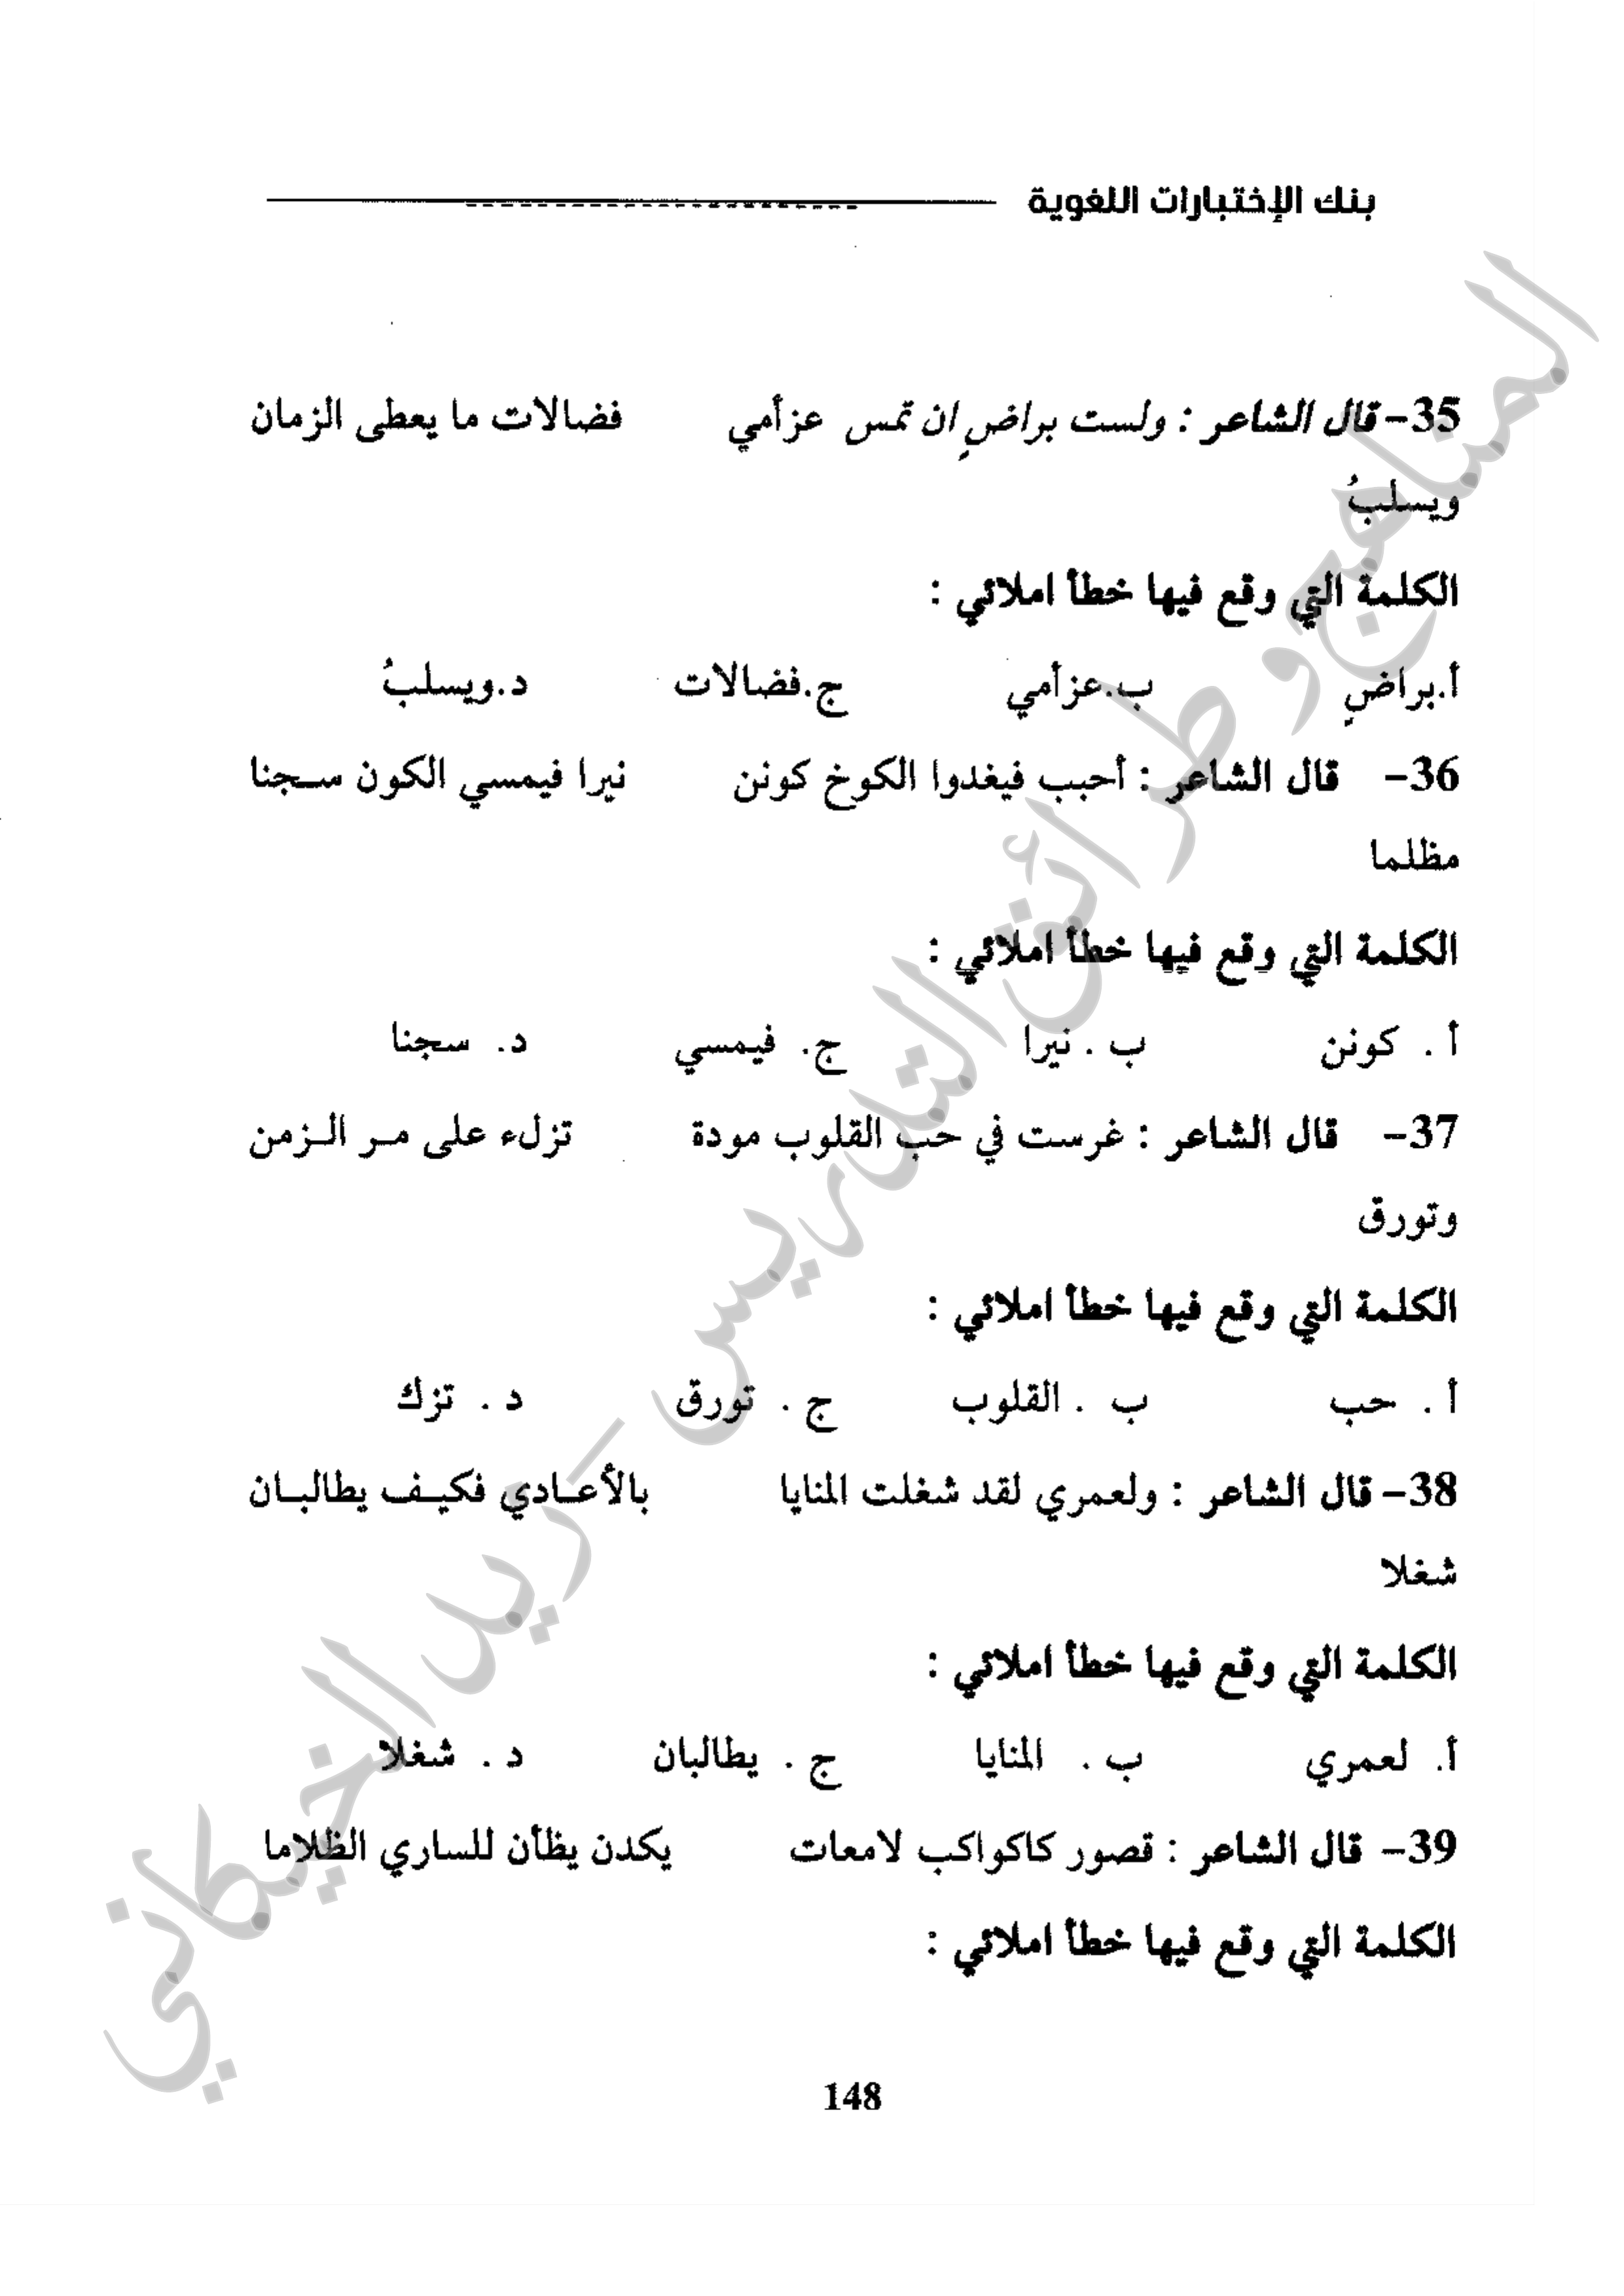 بنك الإختبارات اللغوية
35- قال الشاعر : ولست براضٍ ان تمس عزأمي فضالات ما يعطى الزمان
ويسلبُ
الكلمة التي وقع فيها خطأ املائي :
أ.براضٍ ب.عزأمي ج.فضالات د.ويسلبُ
36- قال الشاعر : أحبب فيغدوا الكوخ كونن نيرا فيمسي الكون سـجنا
مظلما
الكلمة التي وقع فيها خطأ املائي :
أ . كونن ب . نيرا ج. فيمسي د. سجنا
37- قال الشاعر : غرست في حب القلوب مودة تزلء على مـر الـزمن
وتورق
الكلمة التي وقع فيها خطأ املائي :
أ . حب ب . القلوب ج . تورق د . تزك
38- قال الشاعر : ولعمري لقد شغلت المنايا بالأعـادي فكيـف يطالبـان
شغلا
الكلمة التي وقع فيها خطأ املائي :
أ. لعمري ب . المنايا ج . يطالبان د . شغلا
39- قال الشاعر : قصور كاكواكب لامعات يكدن يظأن للساري الظلاما
الكلمة التي وقع فيها خطأ املائي :
148
المناهج و طرائق التدريس – ريد الخيكاني